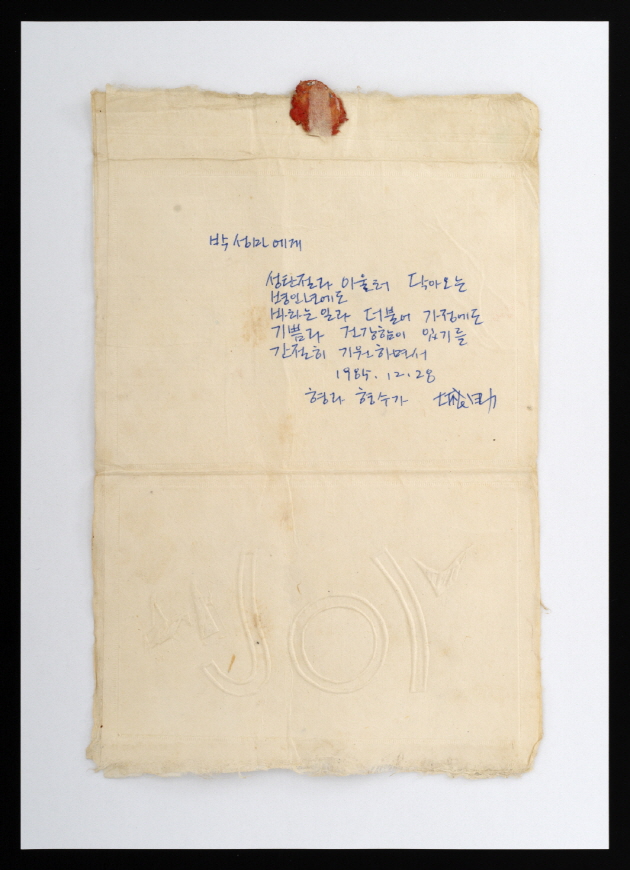 박 에게
성탄절과 아울러 닥아오는
병인년에도
바라는 일과 더불어 가정에도
기쁨과 건강함이 있기를
간절히 기원하면서
1985. 12. 28
형과 형수가
JOY